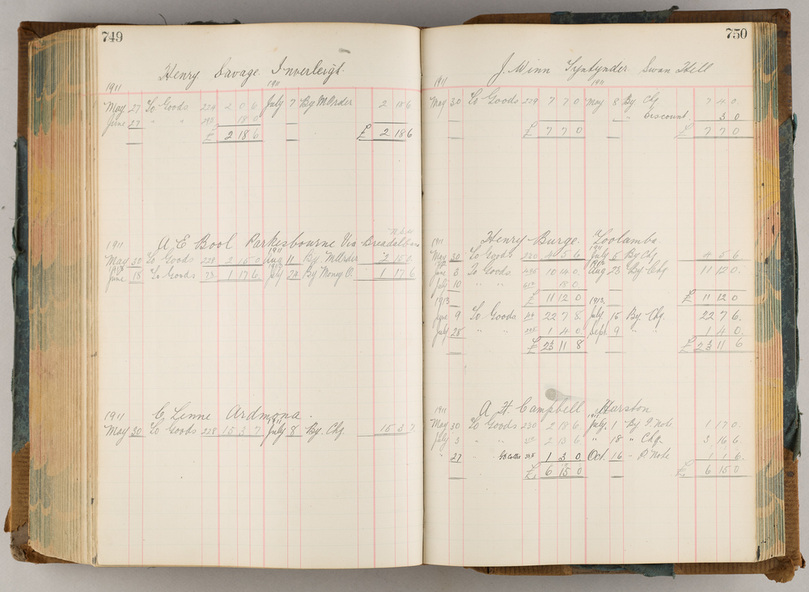 749
Henry Savage Inverleigh
1911 1911
May 27 To Goods 224 2 0 6 July 7 By M Order 2 18 6
June 27 " " 18 0
£ 2 18 6 £ 2 18 6
A E Bool Parkesbourne Via Breadalbane
1911 1911
May 30 To Goods 228 2 15 0 Aug 11 By M Order 2 15 0
June 18 To Goods 73 1 17 6 By Money O. 1 17 6
1911 C Lenne Ardmona
May 30 To Goods 228 15 3 7 July 8 By Chq. 15 3 7
750
J. Winn Tyntynder Swan Hill
1911 1911
May 30 To Goods 229 7 7 0 Nov 8 By Chq 7 4 0
" Discount 3 0
£ 7 7 0 £ 7 7 0
1911 Henry Burge Toolamba 1911
May 30 To Goods 230 4 5 6 July 5 By Chq 4 5 6
June 8 To Goods 10 12 0 Aug 23 By Chq 11 12 0
July 10 " " 15 0
1913 £ 11 12 0 1913 £ 11 12 0
June 9 To Goods 22 7 8 July 16 By Chq 22 7 6
July 25 " " 1 4 0 Sept 9 " " 1 4 0
£ 23 11 8 £ 23 11 6
1911 A H Campbell Hurston 1911
May 30 To Goods 230 2 18 6 July 1 By P. Note 1 17 0
July 3 " " 2 13 6 " 18 " Chq. 3 16 6
" 27 " 1 3 0 Oct 16 " P Note 1 1 6
£ 6 15 0 £ 6 15 0